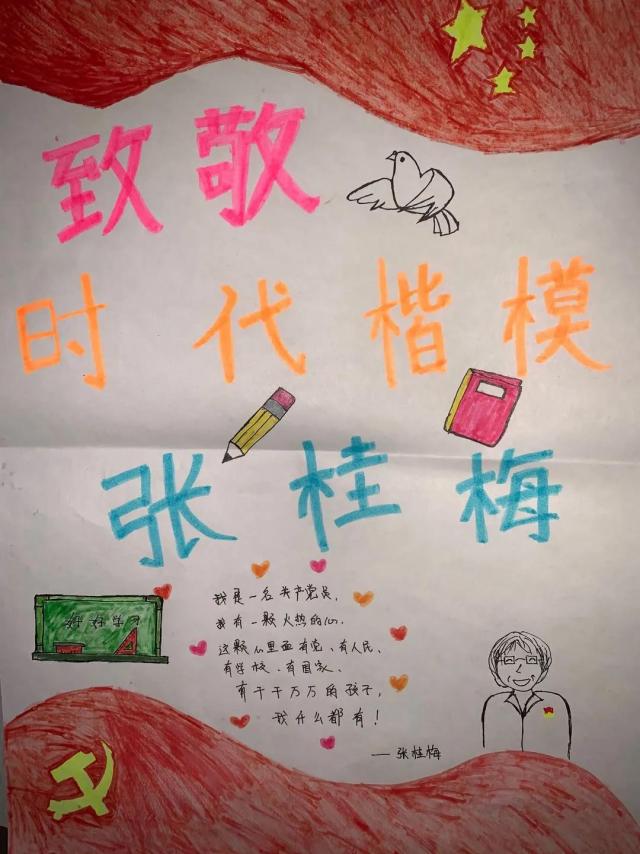 致敬
时代楷模
张桂梅
好好学习
我是一名共产党员,
我有一颗火热的心.
这颗心里面有党、有人民、
有学校、有国家、
有千千万万的孩子,
我什么都有!
——张桂梅